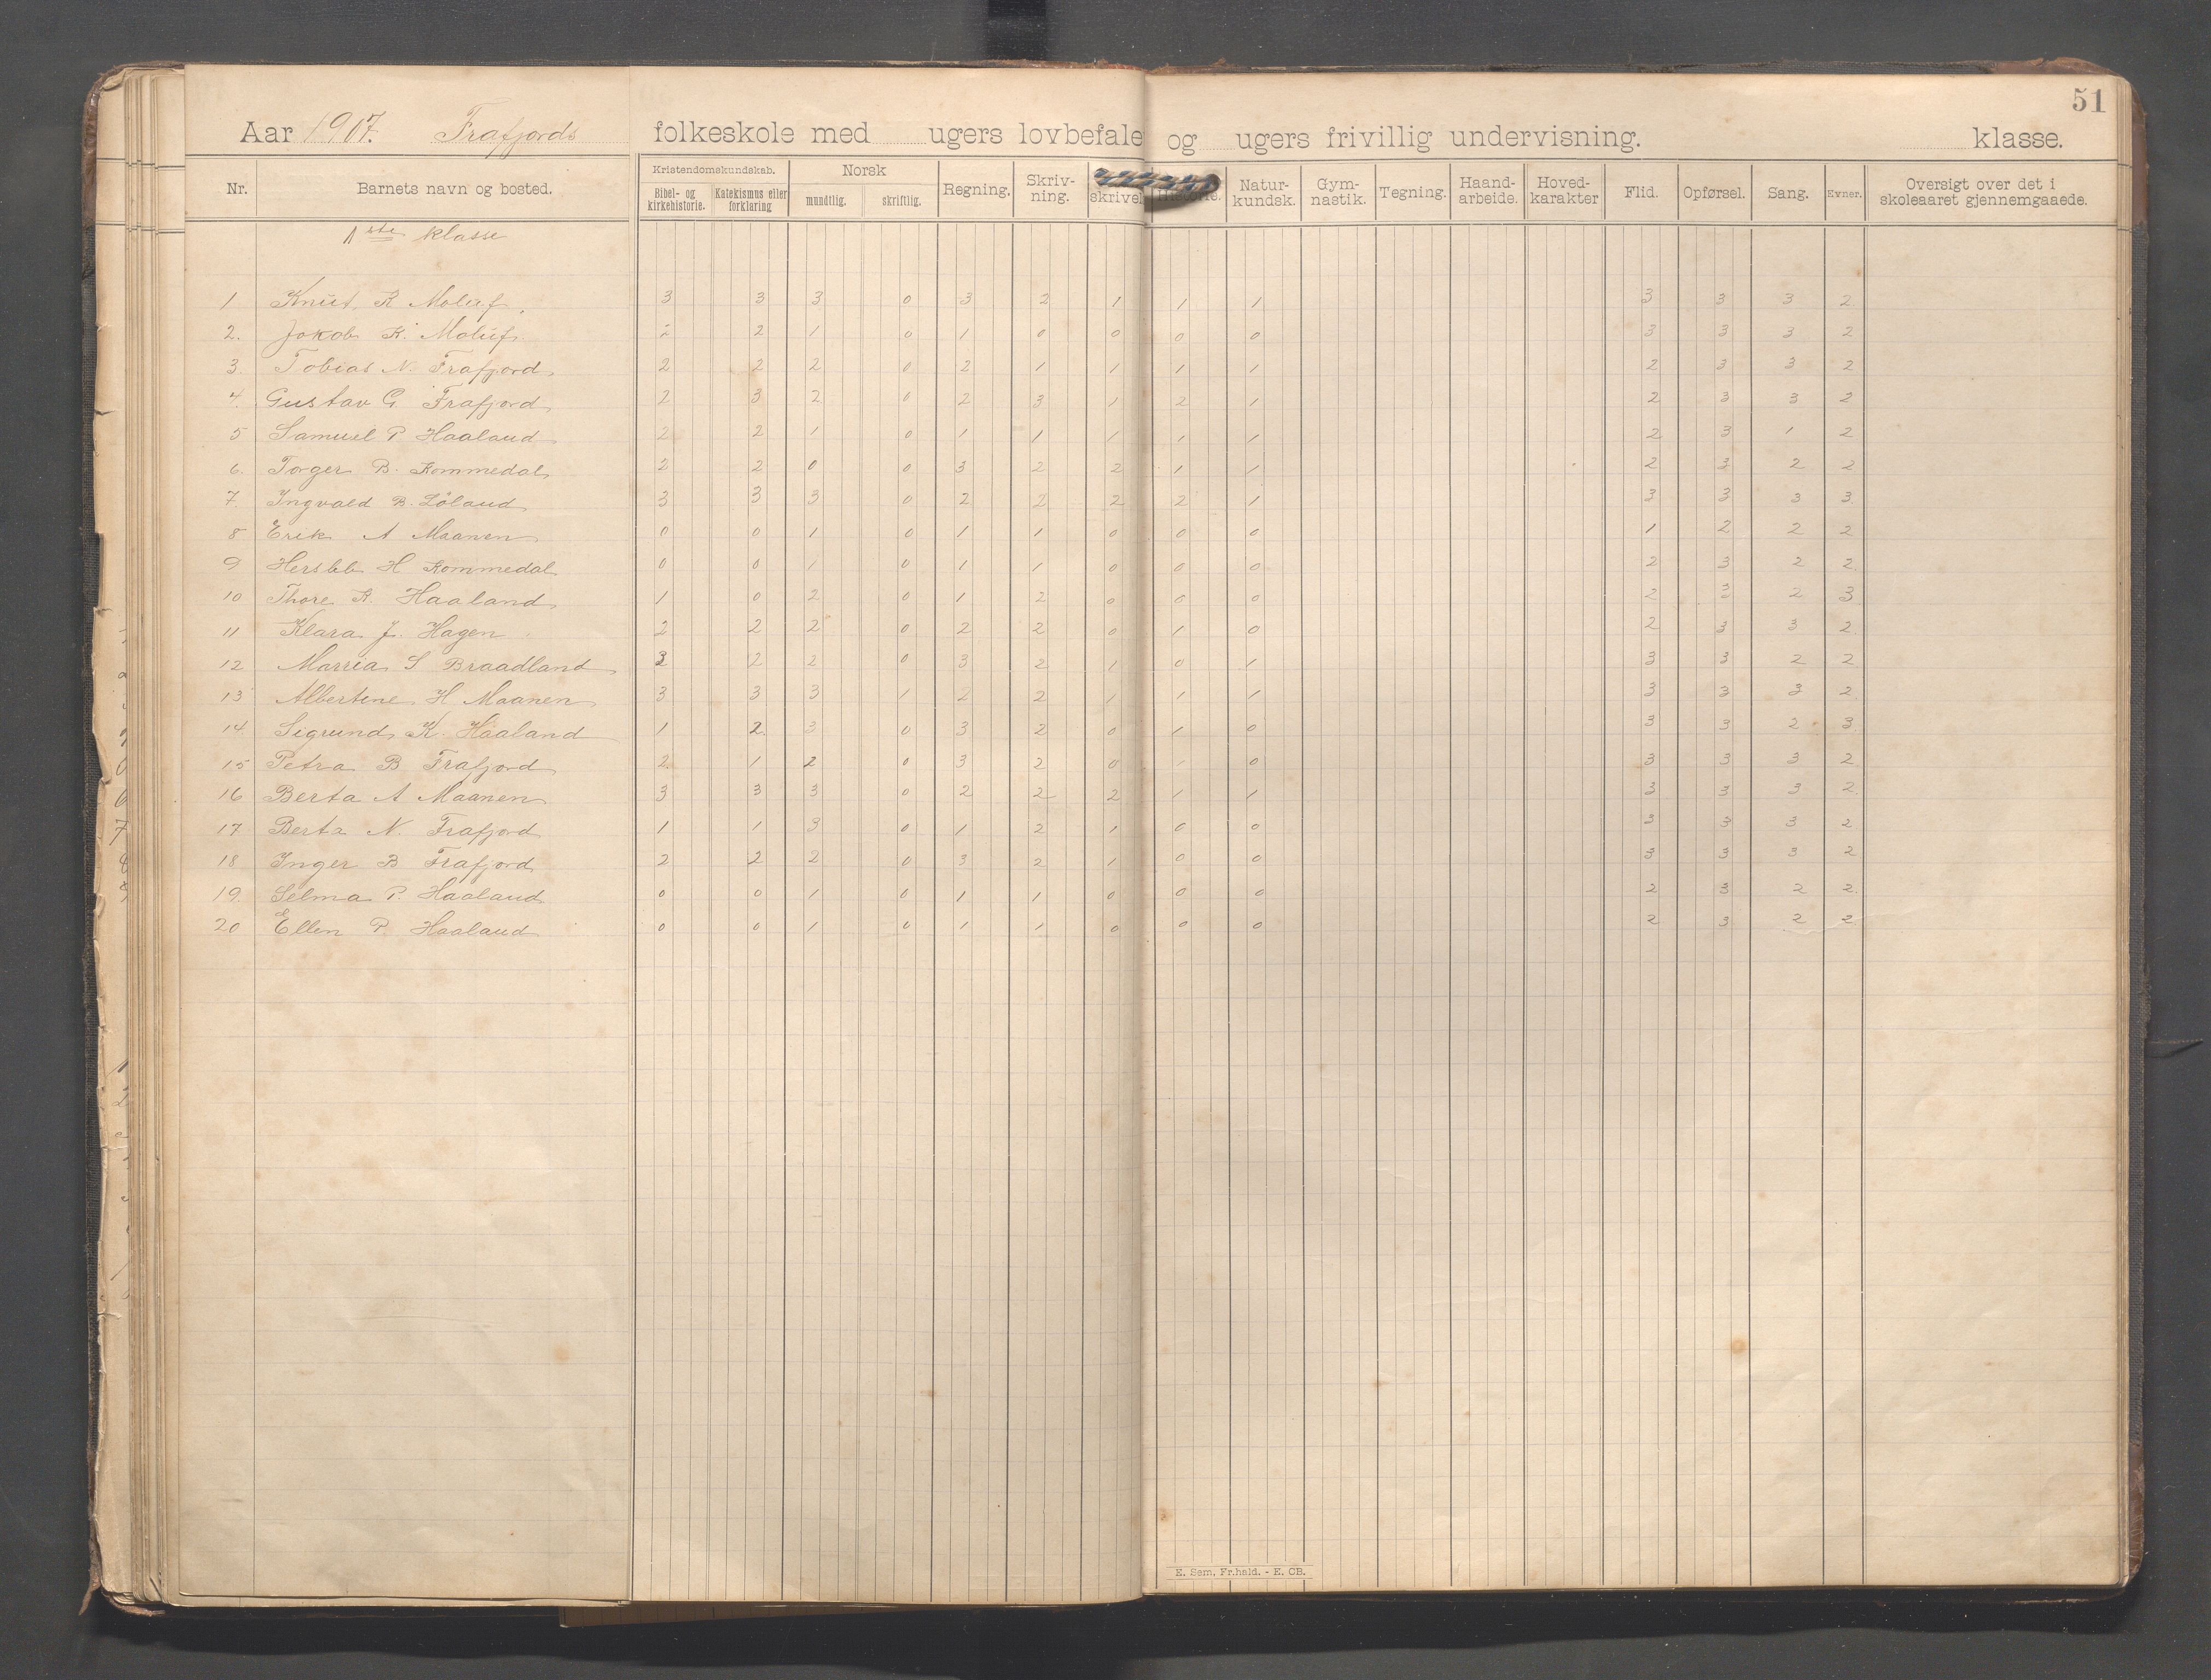 51
Aar 1907. Frafjords folkeskole med ugers lovbefale og ugers frivillig undervisning. klasse.
Nr. Barnets navn og bosted. Kristendomskundskab. Bibel- og kirkehistorie. Katekismus eller forklaring Norsk mundtlig. skriftlig. Regning. Skriv-ning. skrivel Historie. Natur-kundsk. Gym-nastik. Tegning. Haand-arbeide. Hoved-karakter Flid. Opførsel. Sang. Evner. Oversigt over det i skoleaaret gjennemgaaede.
1ste klasse
1 Knut K Moluf. 3 3 3 0 3 2 1 1 1 3 3 3 2
2. Jokob K. Moluf. 2 2 1 0 1 0 0 0 0 3 3 3 2
3. Tobias N. Frafjord 2 2 2 0 2 1 1 1 1 2 3 3 2
4. Gustav G Frafjord 2 3 2 0 2 3 1 2 1 2 3 3 2
5 Samuel P Haaland 2 2 1 0 1 1 1 1 1 2 3 1 2
6. Torger B. Kommedal 2 2 0 0 3 2 2 1 1 2 3 2 2
7. Ingvald B. Løland 3 3 3 0 2 2 2 2 1 3 3 3 3.
8 Erik A Maanen 0 0 1 0 1 1 0 0 0 1 2 2 2
9 Hersleb H Kommedal 0 0 1 0 1 1 0 0 0 2 3 2 2.
10 Thore K. Haaland 1 0 2 0 1 2 0 0 0 2 3 2 3
11 Klara J. Hagen 2 2 2 0 2 2 0 1 0 2 3 3 2.
12 Marria S Braadland 3 2 2 0 3 2 1 0 1 3 3 2 2
13 Albertine H Maanen 3 3 3 1 2 2 1 1 1 3 3 3 2
14 Sigrund K. Haaland 1 2. 3 0 3 2 0 1 0 3 3 2 3.
15 Petra B Frafjord 2. 1 2 0 3 2 0 1 0 3 3 3 2.
16 Berta A Maanen 3 3 3 0 2 2 2 1 1 3 3 3 2.
17 Berta N. Frafjord 1 1 3 0 1 2 1 0 0 3 3 3 2
18 Inger B Frafjord 2 2 2 0 3 2 1 0 0 3 3 3 2
19. Selma P. Haaland 0 0 1 0 1 1 0 0 0 2 3 2 2.
20 Ellen P. Haaland 0 0 1 0 1 1 0 0 0 2 3 2 2
E. Sem, Fr.hald. - E. CB.